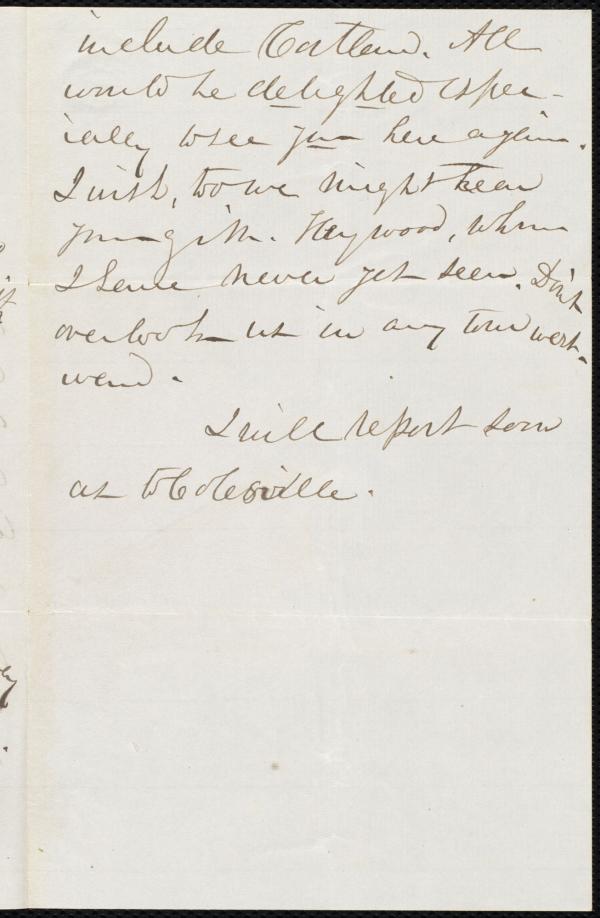 include Cortland. All
would be delighted espec-
ially to see you here again.
I wish, too we might hear
your gifted Heywood, whom
I have never yet seen. Don't
overlook us in any tour west-
ward.
I will report soon
as to Colesville.